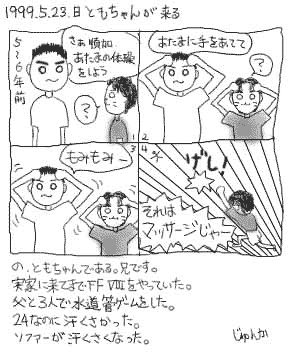 1999.5.23.日ともちゃんが来る
5~6年前
さぁ順加、
あたまの体操
をしよう
?
1
あたまに手をあてて
?
2
もみもみー
3
4
げし!
それは
マッサージじゃー
の、ともちゃんである。兄です。
実家に来てまでFF VIIIをやっていた。
父と3人で水道管ゲームをした。
24なのに汗くさかった。
ソファーが汗くさくなった。
じゅんか